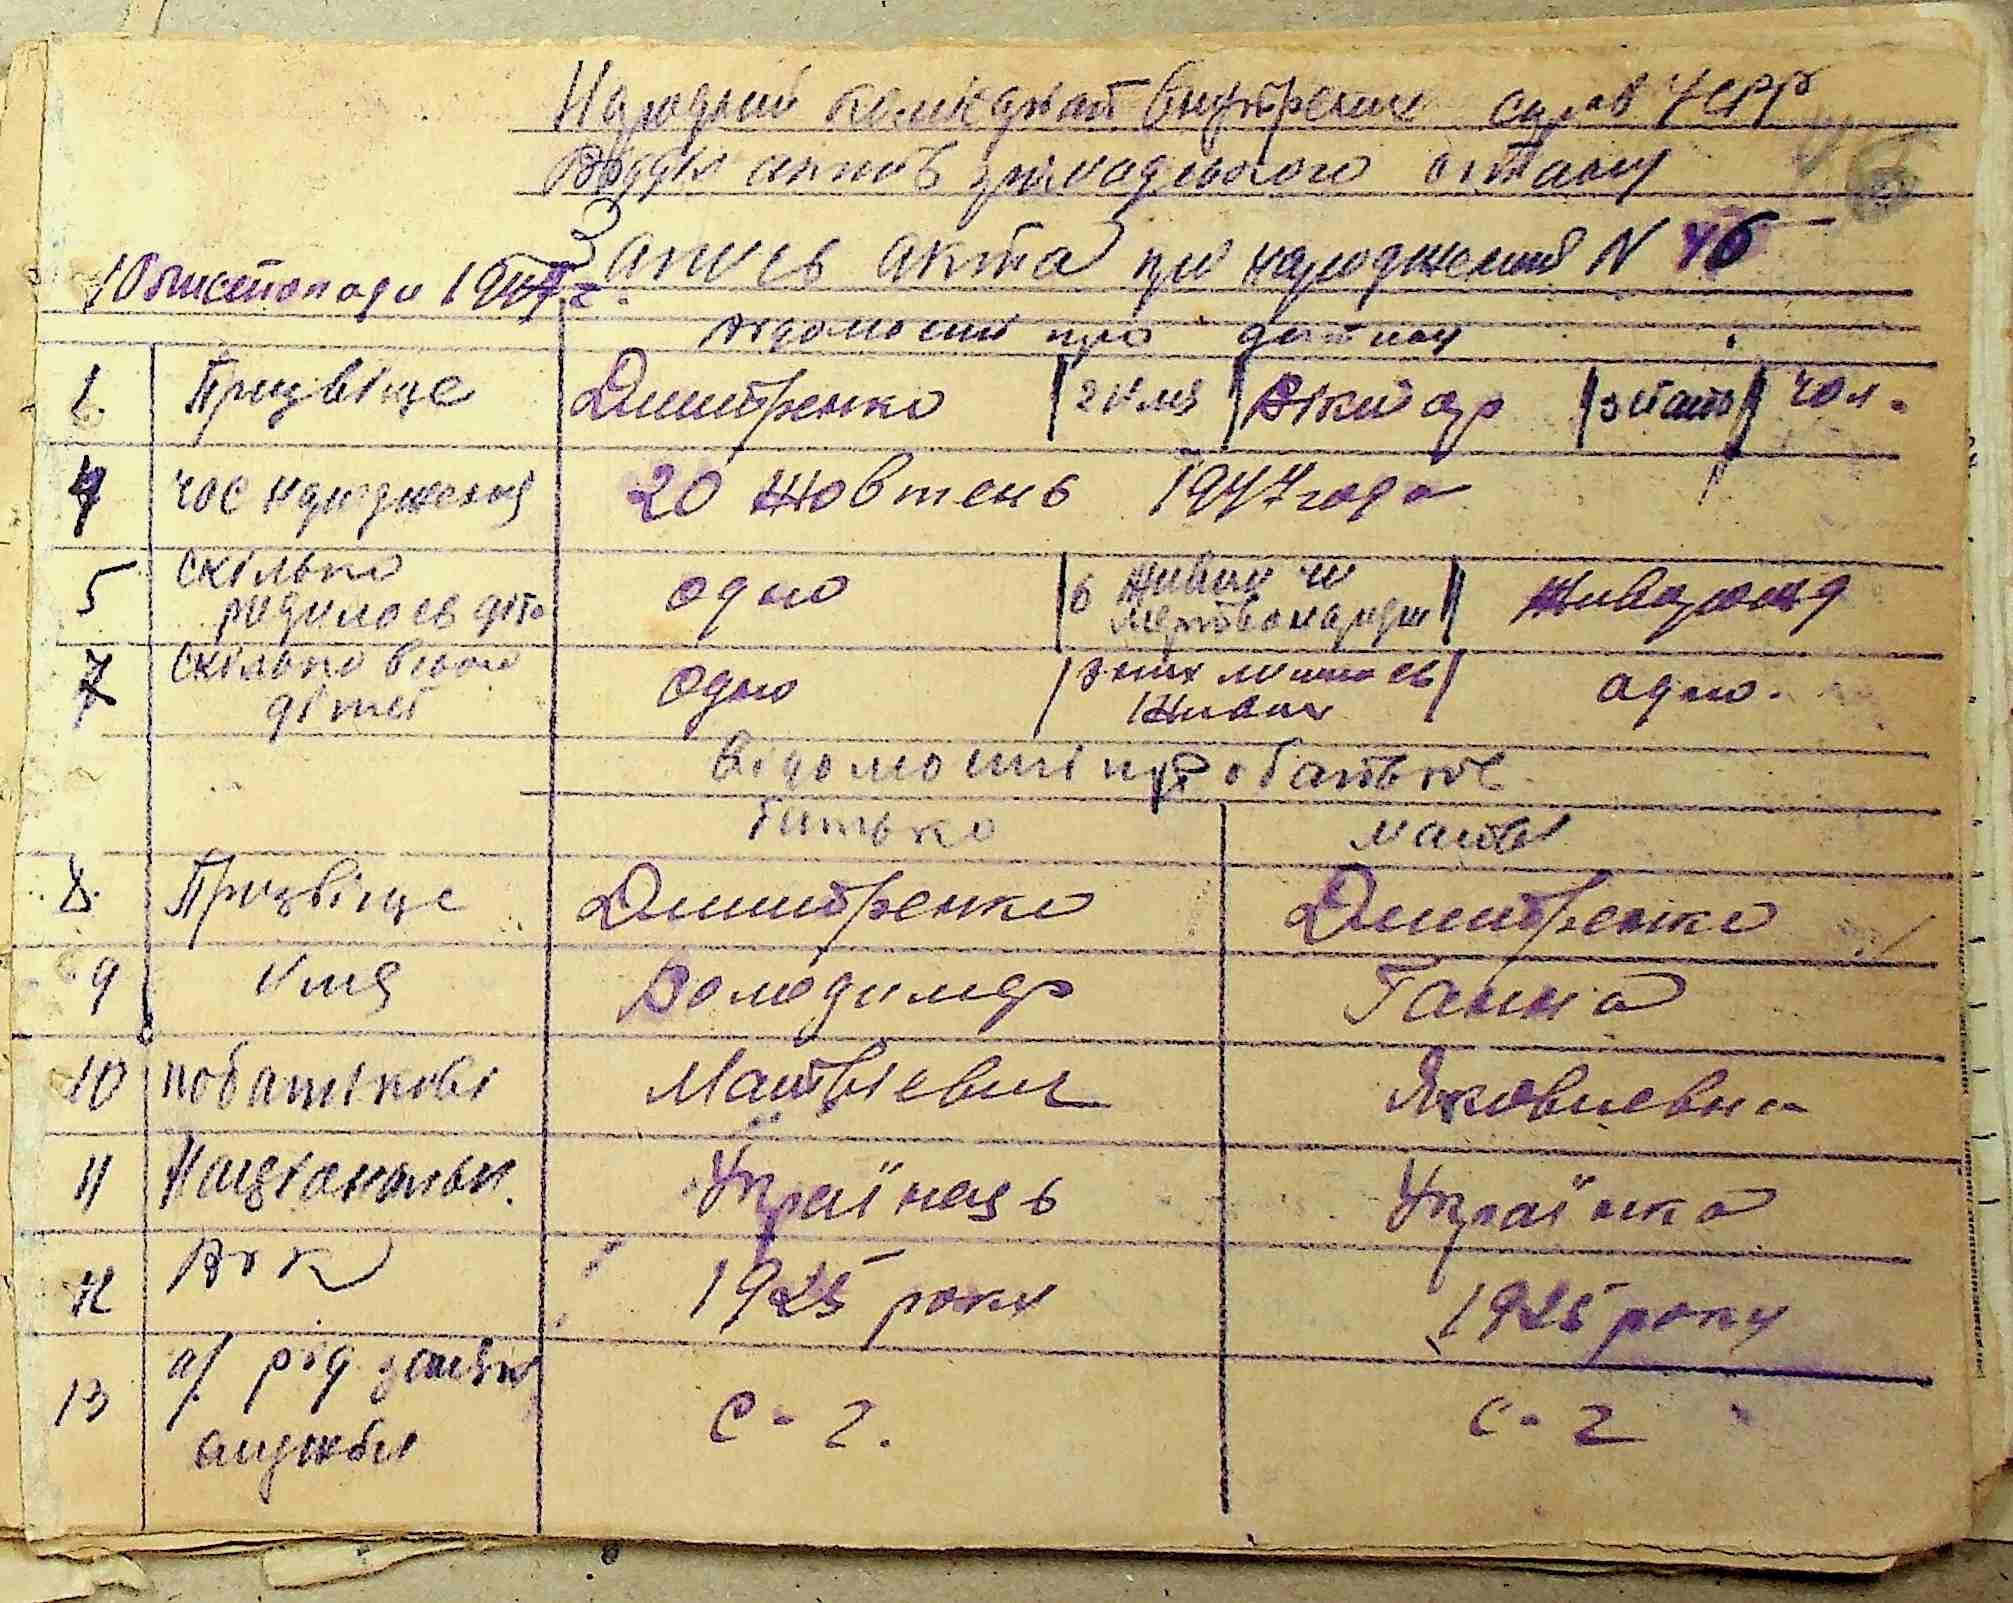 Народний комісаріат внутрених справ УСРР
Відділ актів громадського стану
Запись акта про народження N 46
10 листопада 1947 г.
відомости про дитину
1. Призвіще Дмитренко 2 Имя Віктор 3 стать чол.
4 час народження 20 жовтень 1947 года
5 скілько родилось діте одно 6 живим чи мертвонародж живородж
7 скілько всього дітей одно з них лишилось живих одно.
відомости про батьков
батько мать
8. Призвіще Дмитренко Дмитренко
9 Имя Володимер Ганна
10 побатькові Матвієвич Яковлевна
11 Націанальн. Українець Українка
12 Вік 1925 року 1925 року
13 а/. род занять служби с-г. с-г